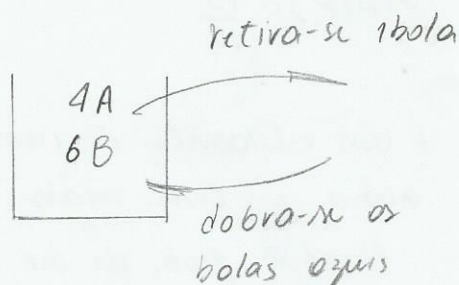 retira-se 1bola
4A
6B
dobra-se as
bolas azuis